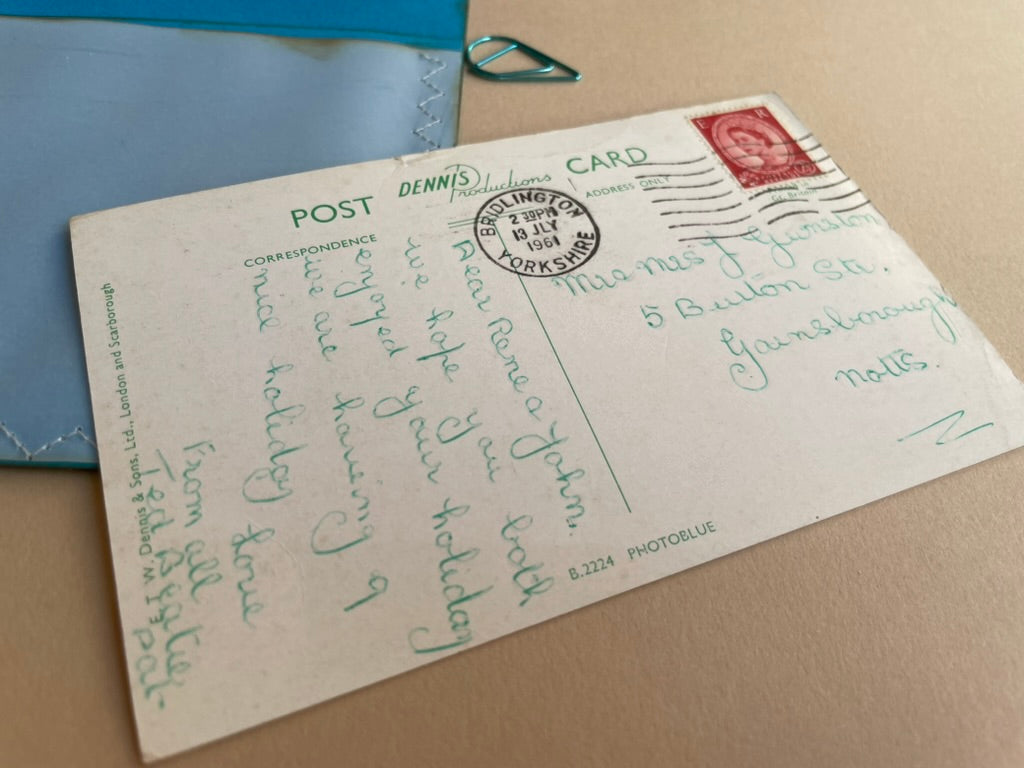 POST DENNIS Productions CARD
CORRESPONDENCE
ADDRESS ONLY
BRIDLINGTON
2 30PM
13 JLY
1961
YORKSHIRE
E R
Gt. Britain
Dear Rene & John,
we hope you both
enjoyed your holiday
we are having a
nice holiday love
From all
Ted Bertie
Pat
Mr & Mrs J Gunston
5 Burton Str.
Gainsborough
Notts.
B.2224 PHOTOBLUE
W. Dennis & Sons, Ltd., London and Scarborough